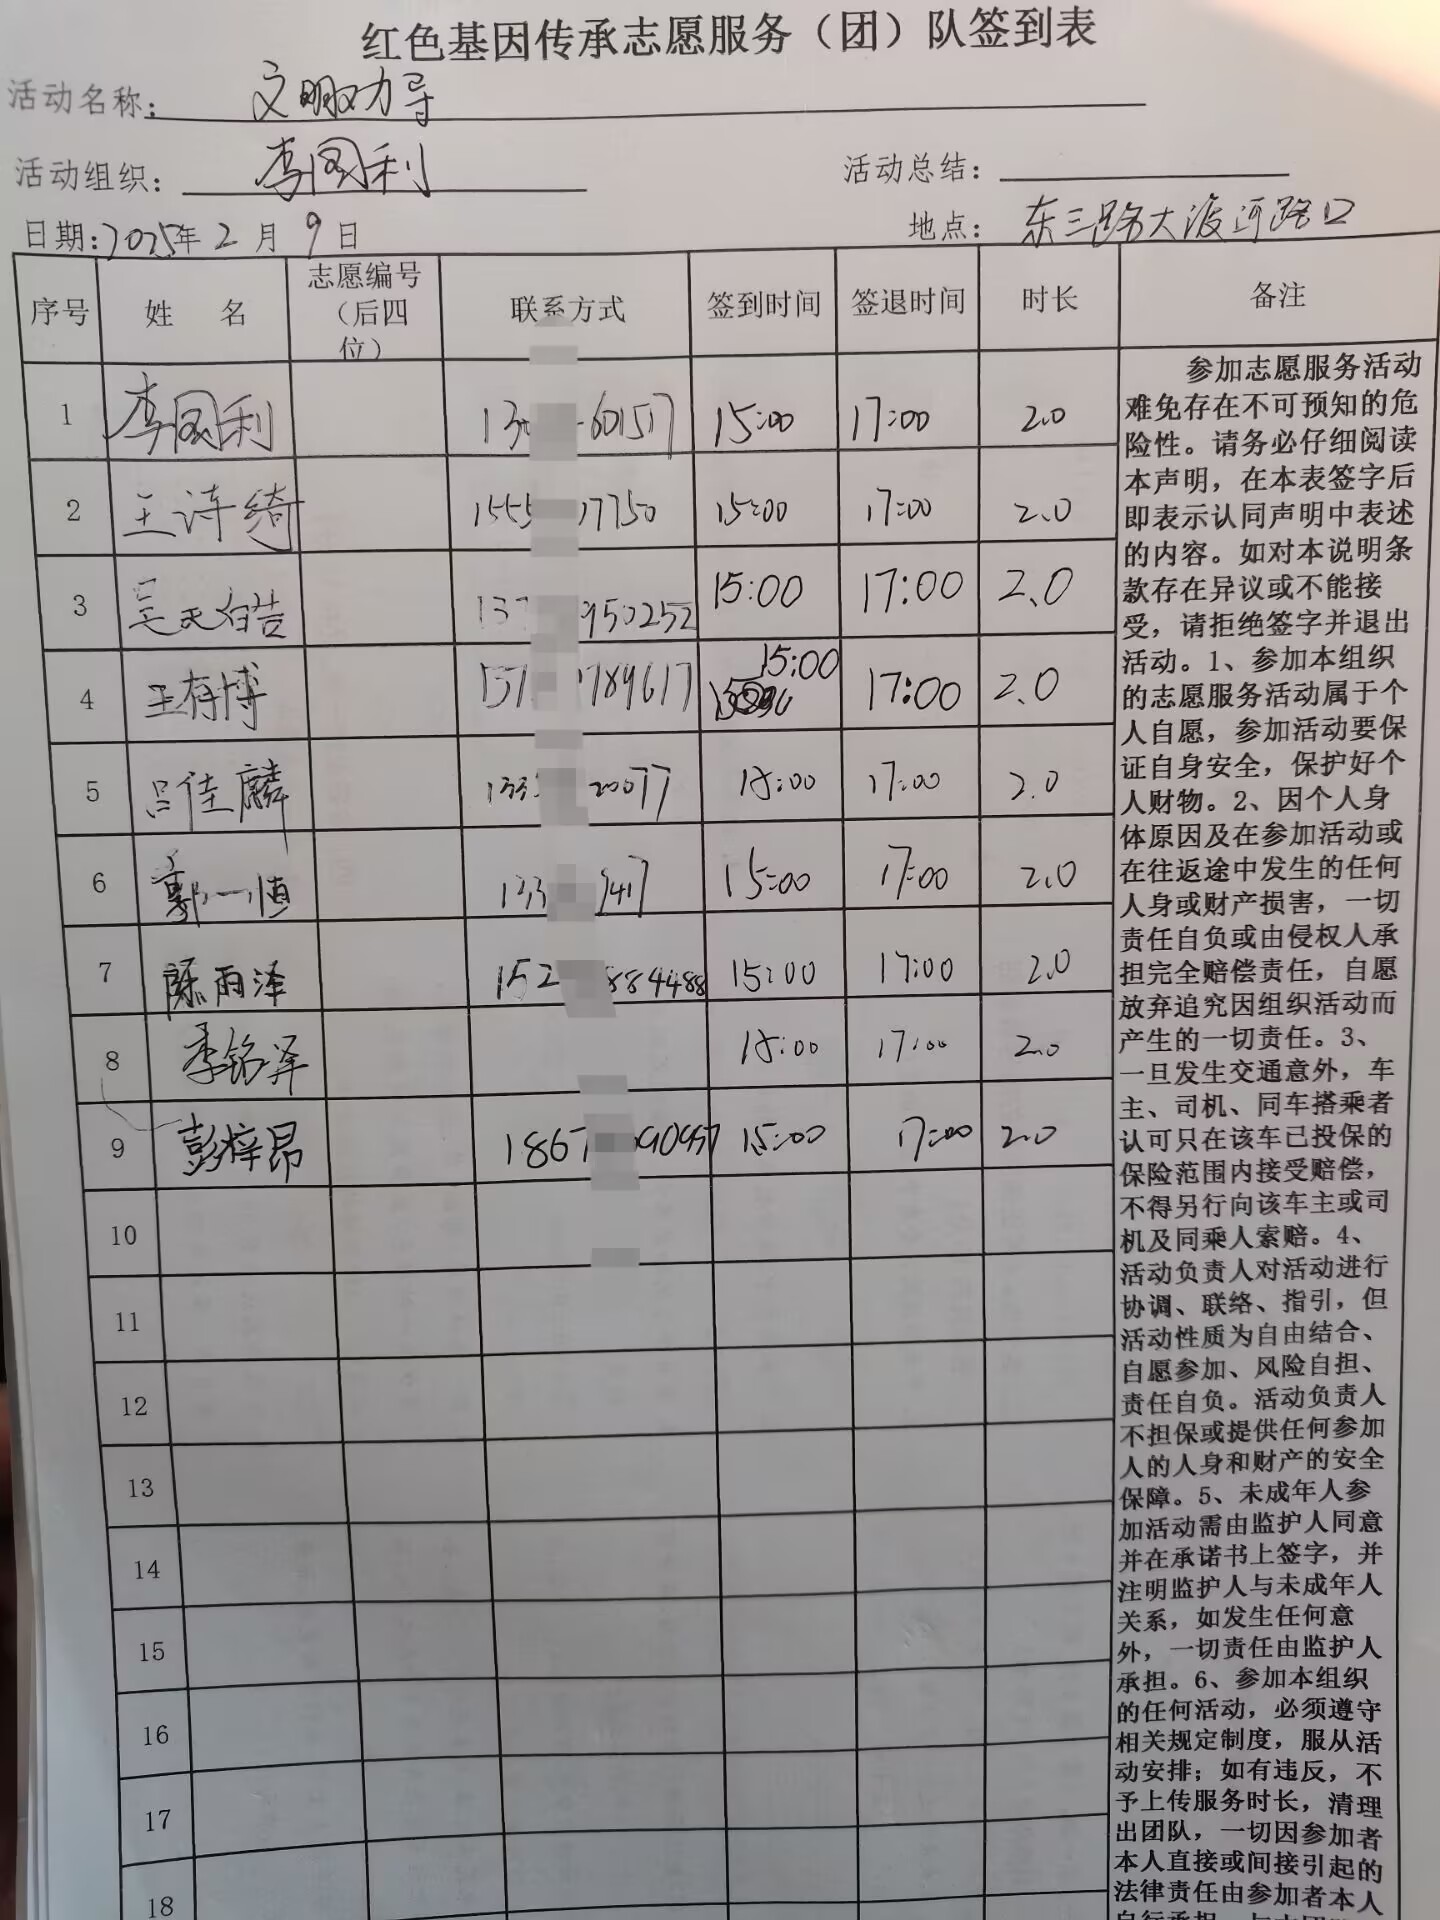 红色基因传承志愿服务（团）队签到表
活动名称： 文明劝导
活动组织： 李国利 活动总结：
日期：2025年 2 月 9 日 地点： 东三路大渡河路口
序号 姓 名 志愿编号（后四位） 联系方式 签到时间 签退时间 时长 备注
1 李国利 13 601517 15:00 17:00 2.0
2 王诗绮 1555 17750 15:00 17:00 2.0
3 吴天皓 137 950252 15:00 17:00 2.0
4 王存博 137 789617 15:00 17:00 2.0
5 吕佳麟 133 20077 15:00 17:00 2.0
6 郭一恒 133 9417 15:00 17:00 2.0
7 陈雨泽 152 884488 15:00 17:00 2.0
8 李铭泽 15:00 17:00 2.0
9 彭梓昂 1867 15:00 17:00 2.0
10
11
12
13
14
15
16
17
18
参加志愿服务活动
难免存在不可预知的危
险性。请务必仔细阅读
本声明，在本表签字后
即表示认同声明中表述
的内容。如对本说明条
款存在异议或不能接
受，请拒绝签字并退出
活动。1、参加本组织
的志愿服务活动属于个
人自愿，参加活动要保
证自身安全，保护好个
人财物。2、因个人身
体原因及在参加活动或
在往返途中发生的任何
人身或财产损害，一切
责任自负或由侵权人承
担完全赔偿责任，自愿
放弃追究因组织活动而
产生的一切责任。3、
一旦发生交通意外，车
主、司机、同车搭乘者
认可只在该车已投保的
保险范围内接受赔偿，
不得另行向该车主或司
机及同乘人索赔。4、
活动负责人对活动进行
协调、联络、指引，但
活动性质为自由结合、
自愿参加、风险自担、
责任自负。活动负责人
不担保或提供任何参加
人的人身和财产的安全
保障。5、未成年人参
加活动需由监护人同意
并在承诺书上签字，并
注明监护人与未成年人
关系，如发生任何意
外，一切责任由监护人
承担。6、参加本组织
的任何活动，必须遵守
相关规定制度，服从活
动安排；如有违反，不
予上传服务时长，清理
出团队，一切因参加者
本人直接或间接引起的
法律责任由参加者本人